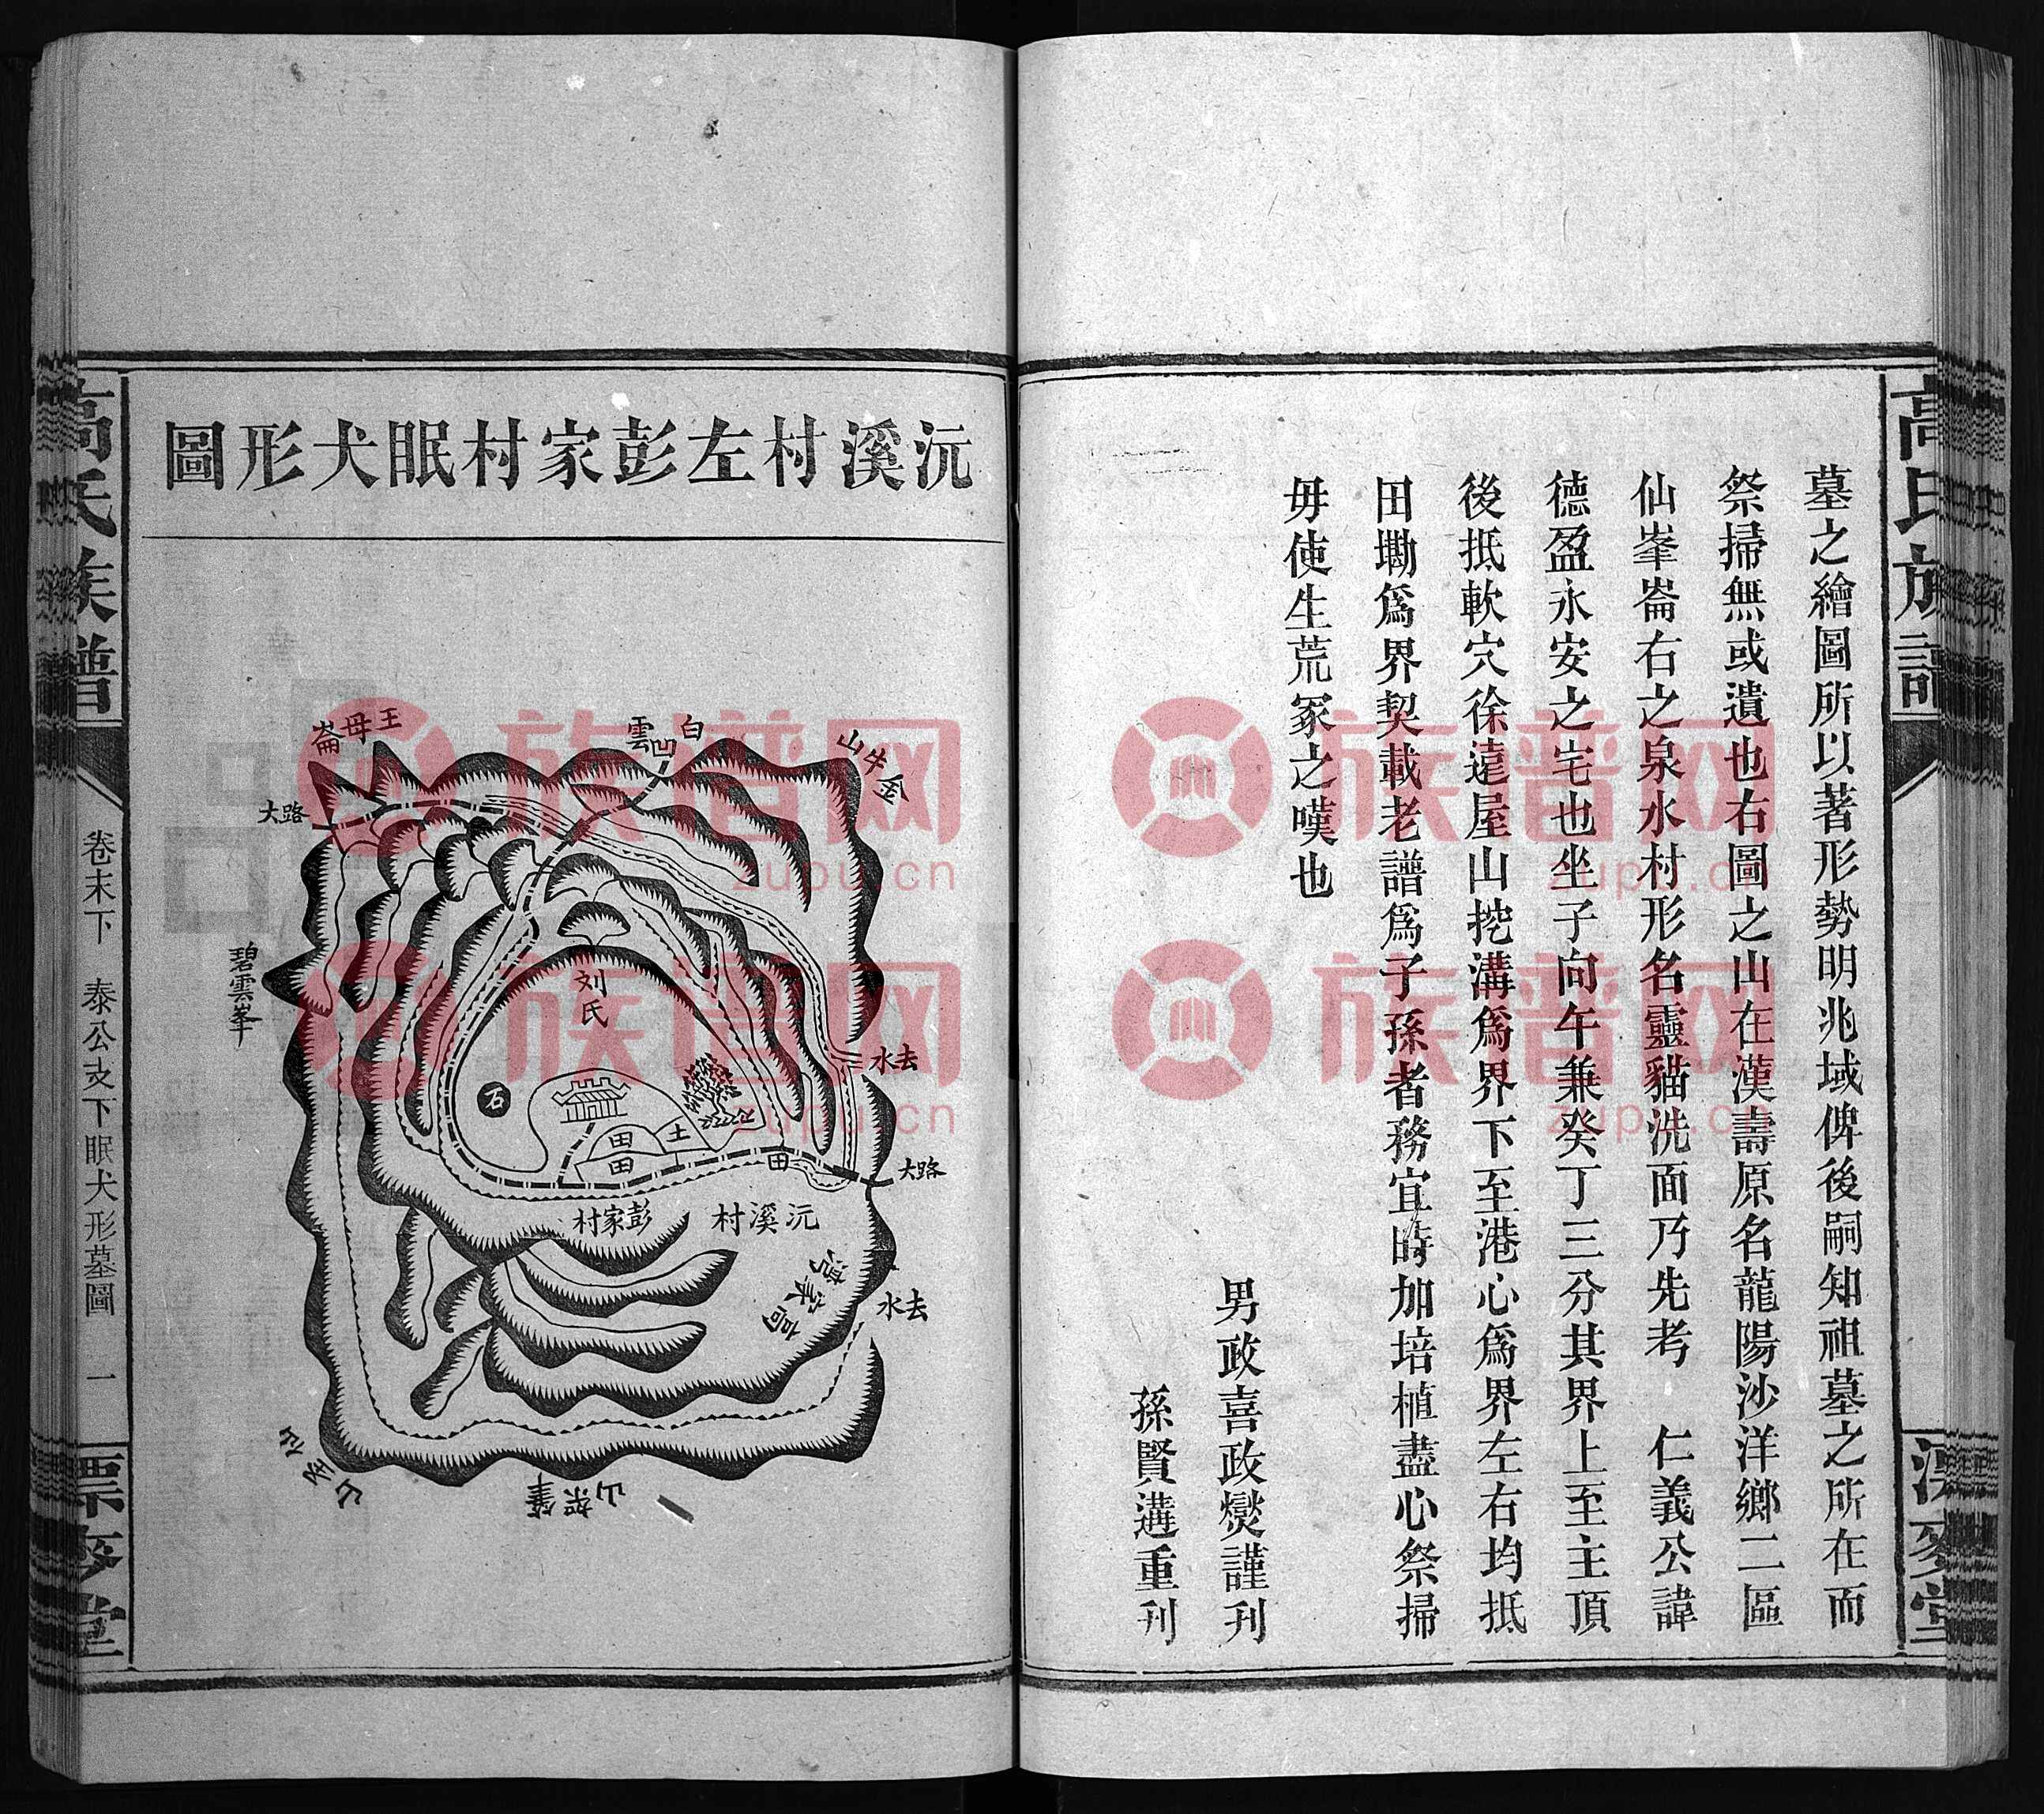 高氏族譜
墓之繪圖所以著形勢明兆域俾後嗣知祖墓之所在而
祭掃無或遺也右圖之山在漢壽原名龍陽沙洋鄉二區
仙峯崙右之泉水村形名靈貓洗面乃先考　仁義公諱
德盈永安之宅也坐子向午兼癸丁三分其界上至主頂
後抵軟穴徐遠屋山挖溝爲界下至港心爲界左右均抵
田塝爲界契載老譜爲子孫者務宜時加培植盡心祭掃
毋使生荒冢之嘆也
男政喜政爕謹刊
孫賢遘重刊
沅溪村左彭家村眠犬形圖
王母崙
白雲凹
金牛山
大路
碧雲峯
刘氏
石
田
土
田
田
水去
大路
彭家村
沅溪村
高家灣
水去
筆架山
高氏族譜
卷末下　泰公支下眠犬形墓圖　一
漂麥堂
族譜网
zupu.cn
族譜网
zupu.cn
族譜网
zupu.cn
族譜网
zupu.cn